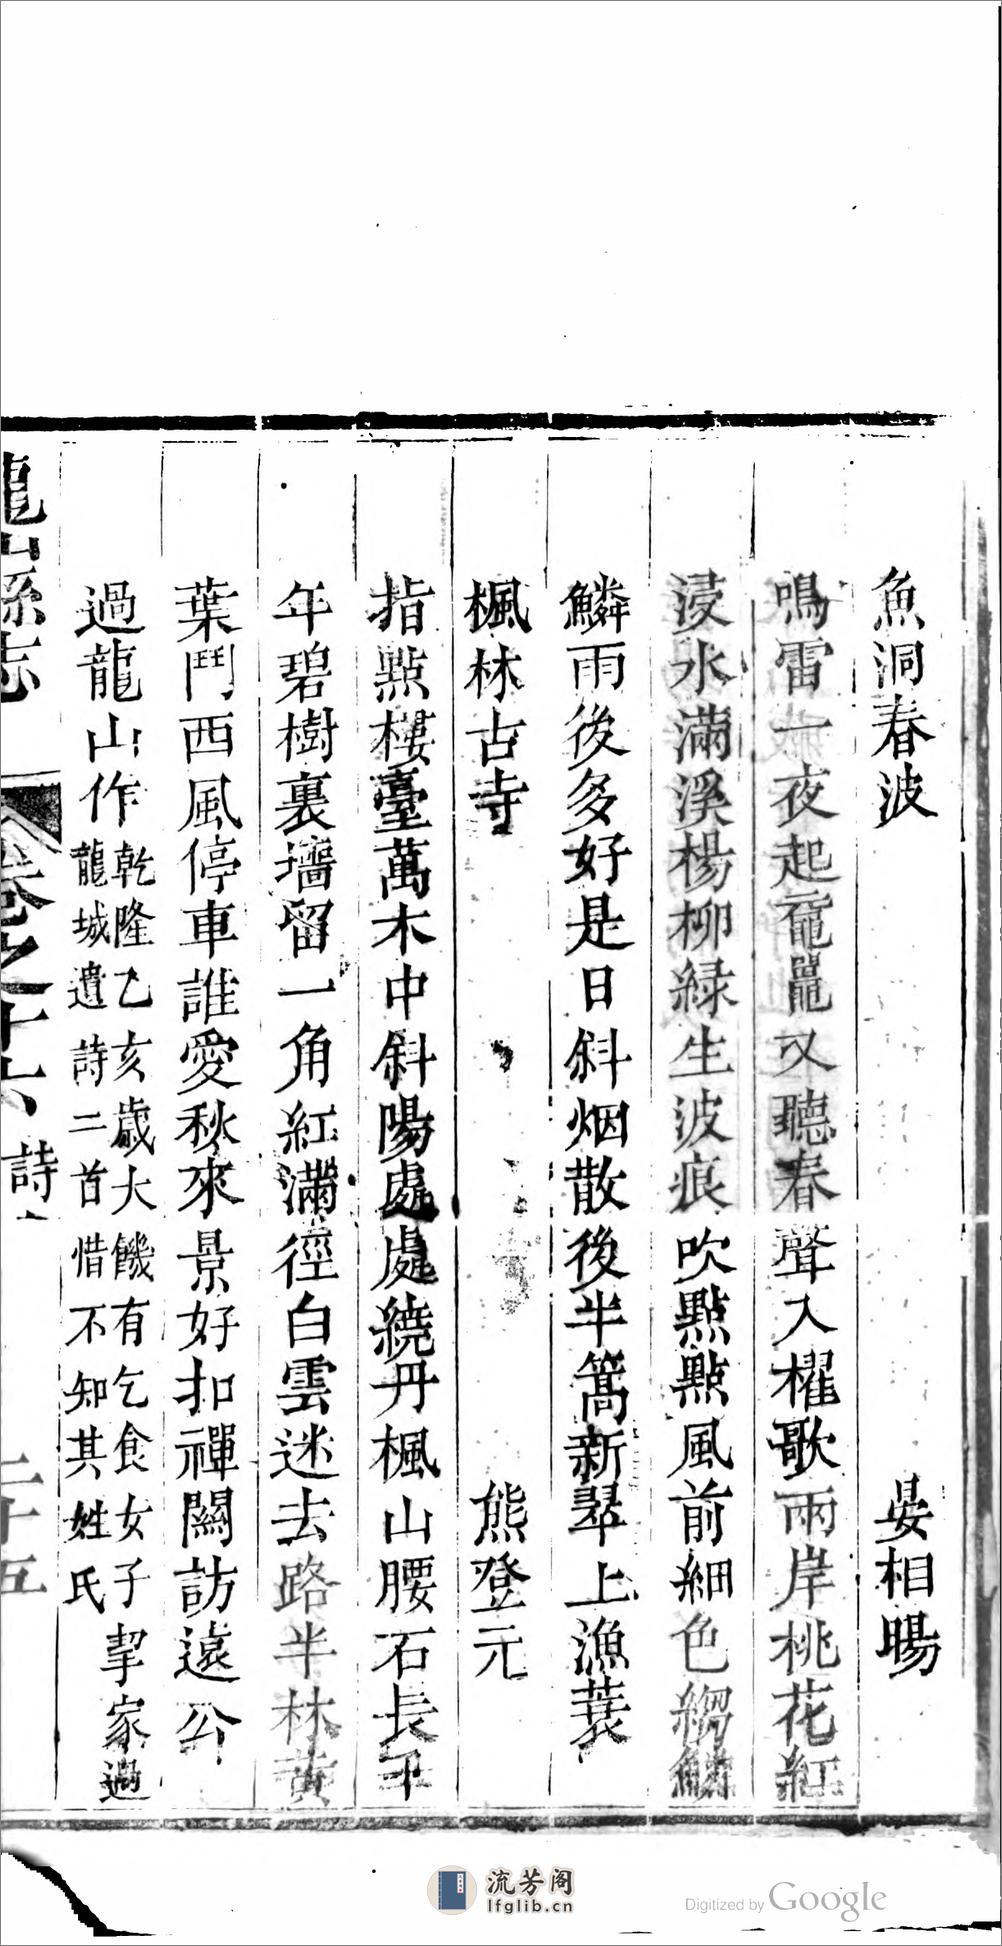 魚洞春波　晏相暘
鳴雷一夜起黿鼉又聽春聲入櫂歌兩岸桃花紅
浸水滿溪楊柳綠生波痕吹點點風前細色縐鱗
鱗雨後多好是日斜烟散後半篙新翠上漁蓑
楓林古寺　熊登元
指點樓臺萬木中斜陽處處繞丹楓山腰石長千
年碧樹裏墻留一角紅滿徑白雲迷去路半林黃
葉鬥西風停車誰愛秋來景好扣禪關訪遠公
過龍山作
乾隆乙亥歲大饑有乞食女子挈家過
龍城遺詩二首惜不知其姓氏
龍山縣志 卷之十六 詩 二十五
流芳阁
lfglib.cn
Digitized by Google